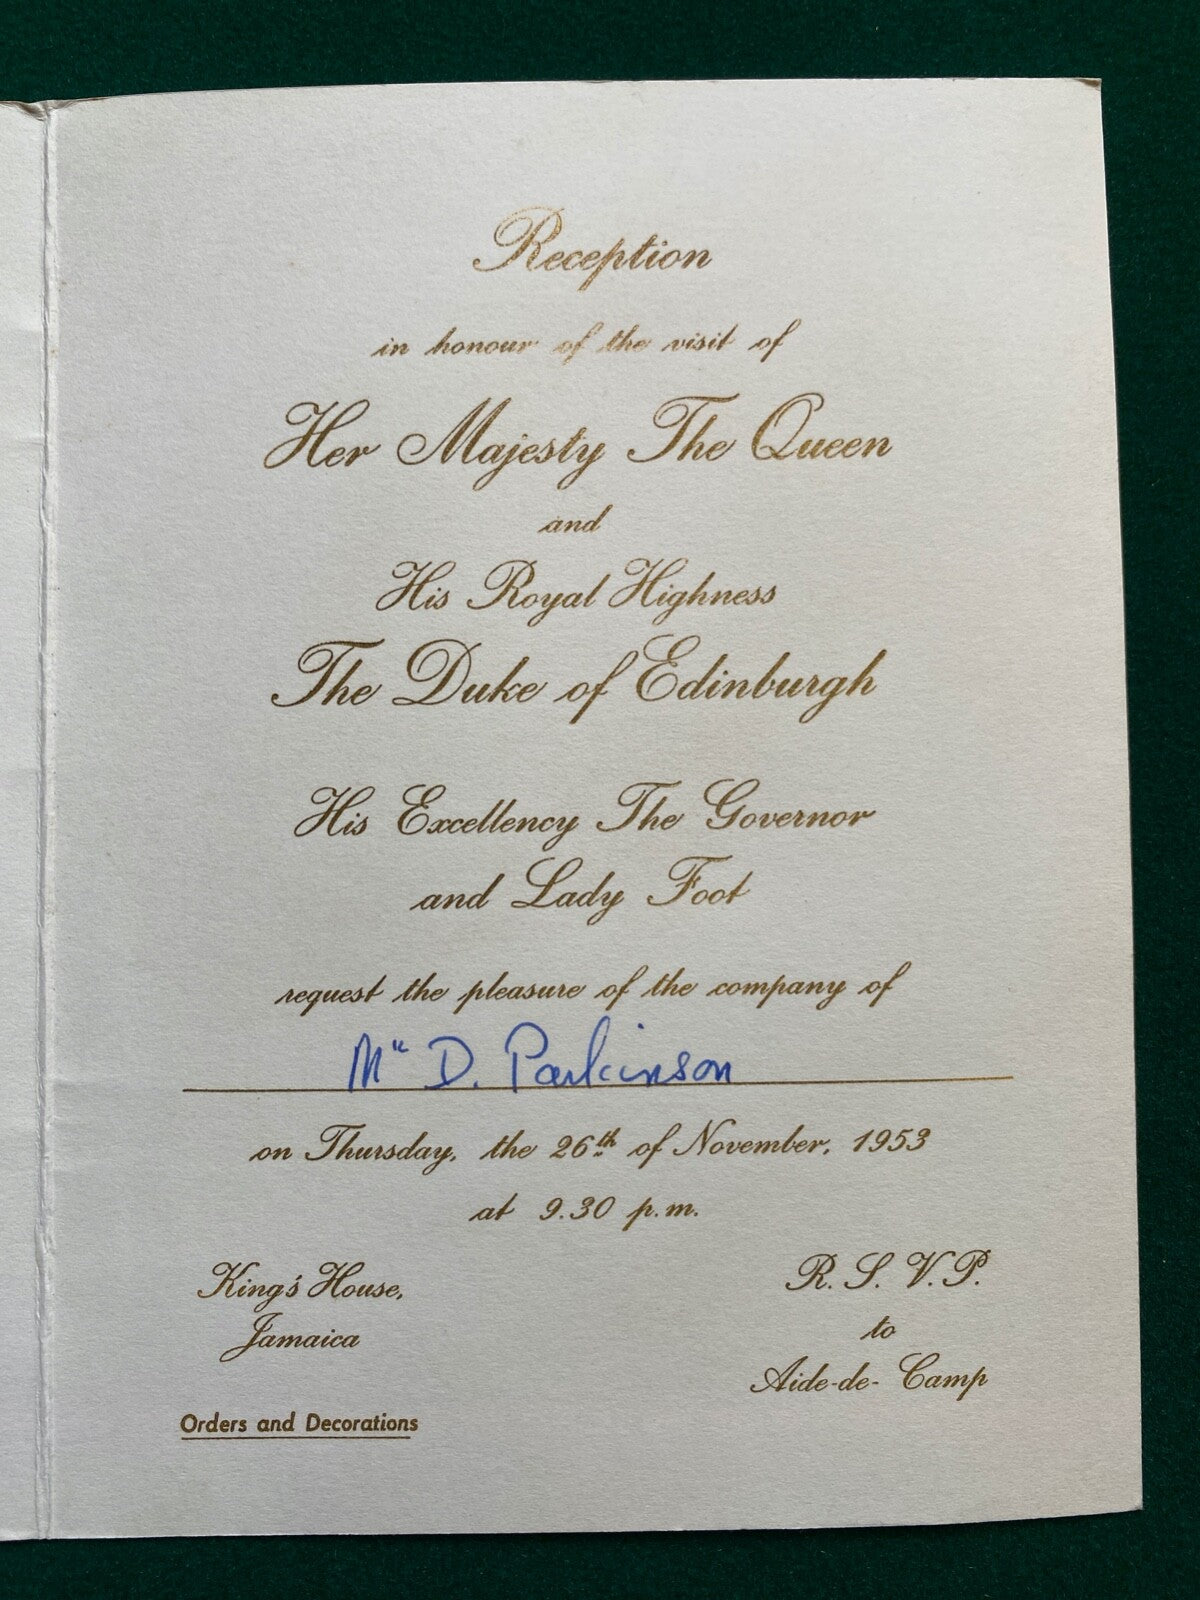 Reception
in honour of the visit of
Her Majesty The Queen
and
His Royal Highness
The Duke of Edinburgh
His Excellency The Governor
and Lady Foot
request the pleasure of the company of
Mr D. Parkinson
on Thursday, the 26th of November, 1953
at 9.30 p.m.
King's House,
Jamaica
R. S. V. P.
to
Aide-de-Camp
Orders and Decorations